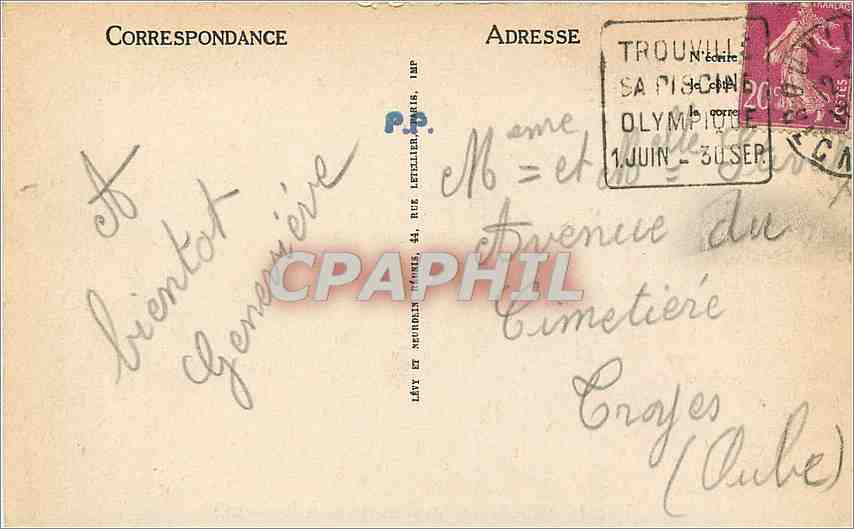 CORRESPONDANCE
ADRESSE
TROUVILLE
SA PISCINE
OLYMPIQUE
1.JUIN - 30 SEP.
N'écrire
le côté
la corre
20c
P.P.
A
bientot
Geneviève
Meme = et Mlle =
Avenue du
Cimetière
Troyes
(Aube)
LÉVY ET NEURDEIN RÉUNIS, 44, RUE LETELLIER, PARIS, IMP
CPAPHIL